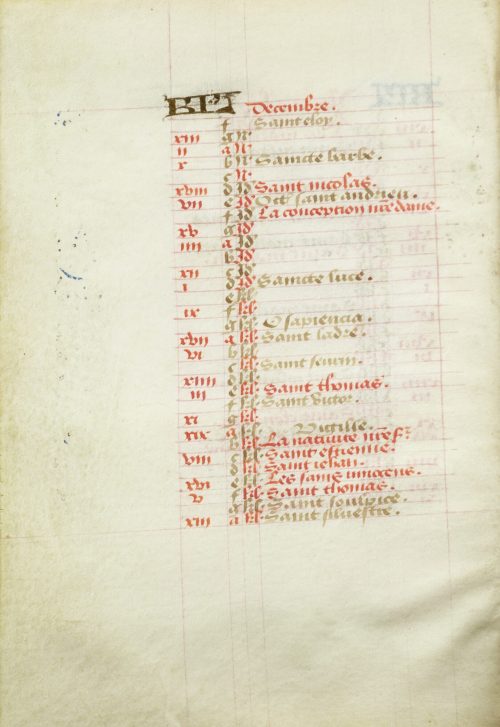 KL Decembre.
f Saint eloy.
xiii g N.
ii a N.
x b N Saincte barbe.
c N.
xviii d Id Saint nicolas.
vii e Id Oct saint andrieu.
f Id La conception nre dame.
xv g Id
iiii a Id
b Id
xii c Id
i d Id Saincte luce.
e kl
ix f kl
g kl O sapiencia.
xvii a kl Saint ladre.
vi b kl
c kl Saint seurin.
xiiii d kl
iii e kl Saint thomas.
f kl Saint victor.
xi g kl
xix a kl Vigille.
b kl La nativite nre sr
viii c kl Saint estienne.
d kl Saint iehan.
xvi e kl Les sains innocens.
v f kl Saint thomas.
g kl Saint soulpice.
xiii a kl Saint silvestre.